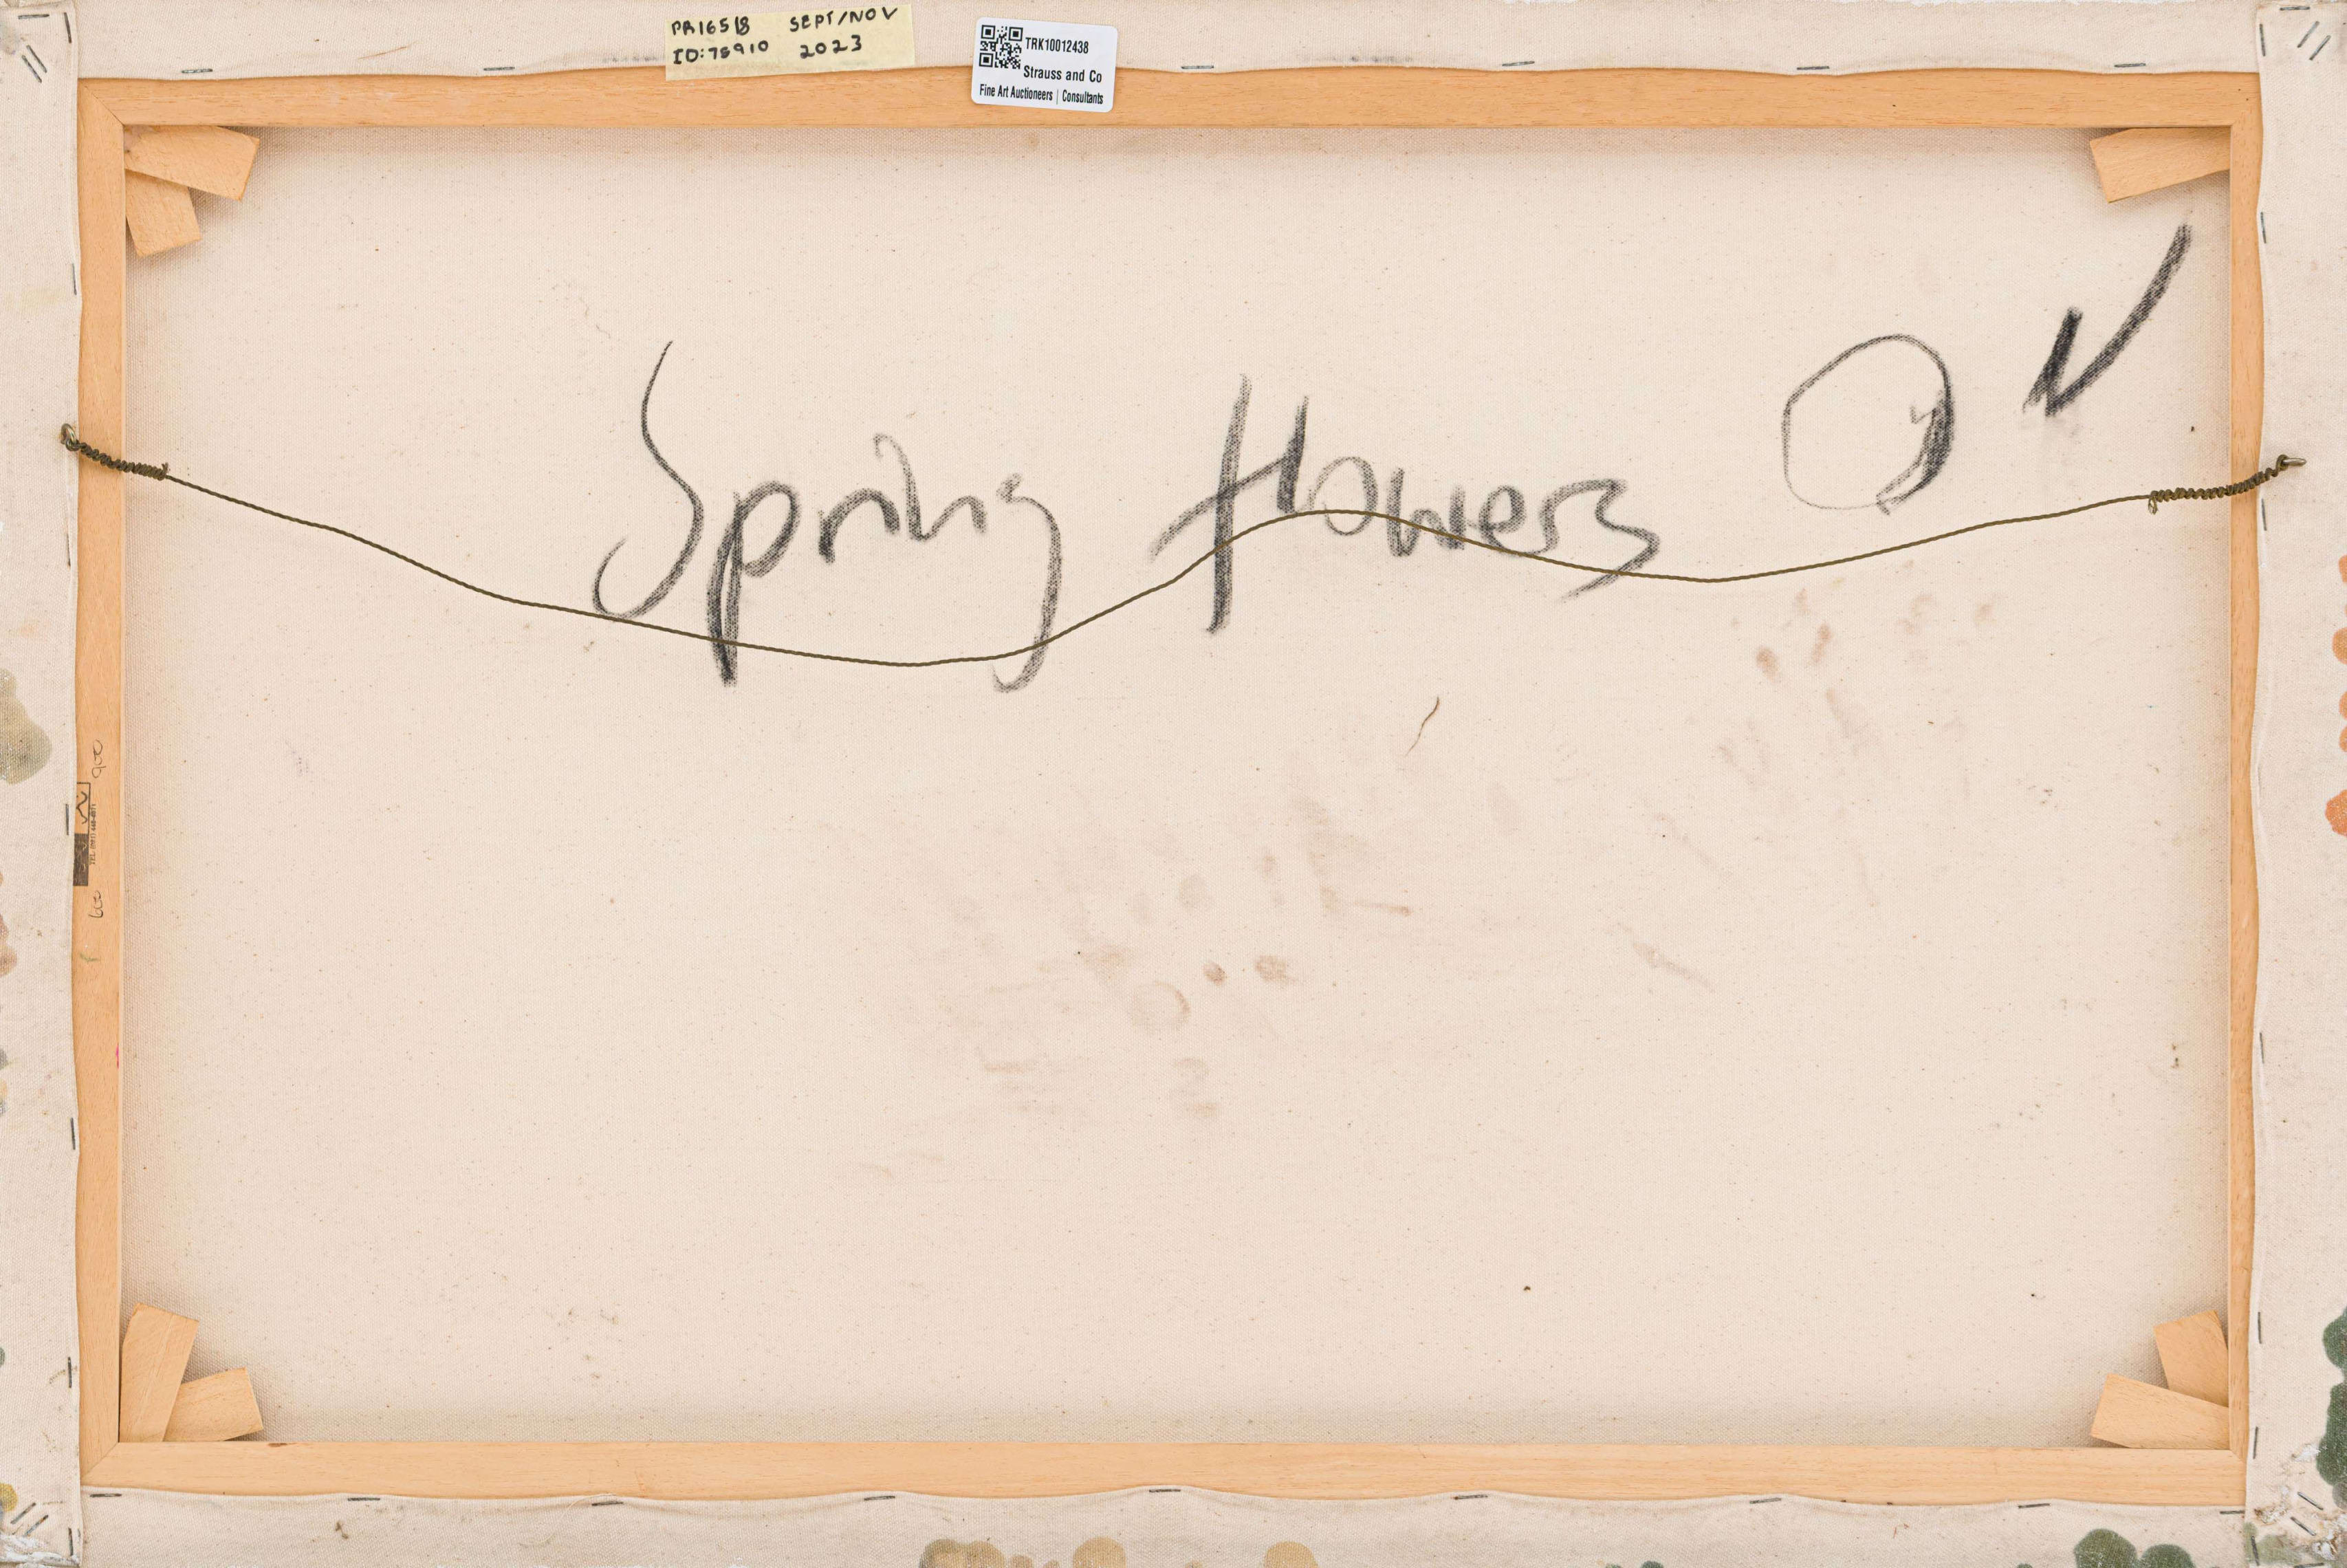 PR16518 SEPT/NOV
ID:78910 2023
TRK10012438
Strauss and Co
Fine Art Auctioneers | Consultants
Spring flowers
900